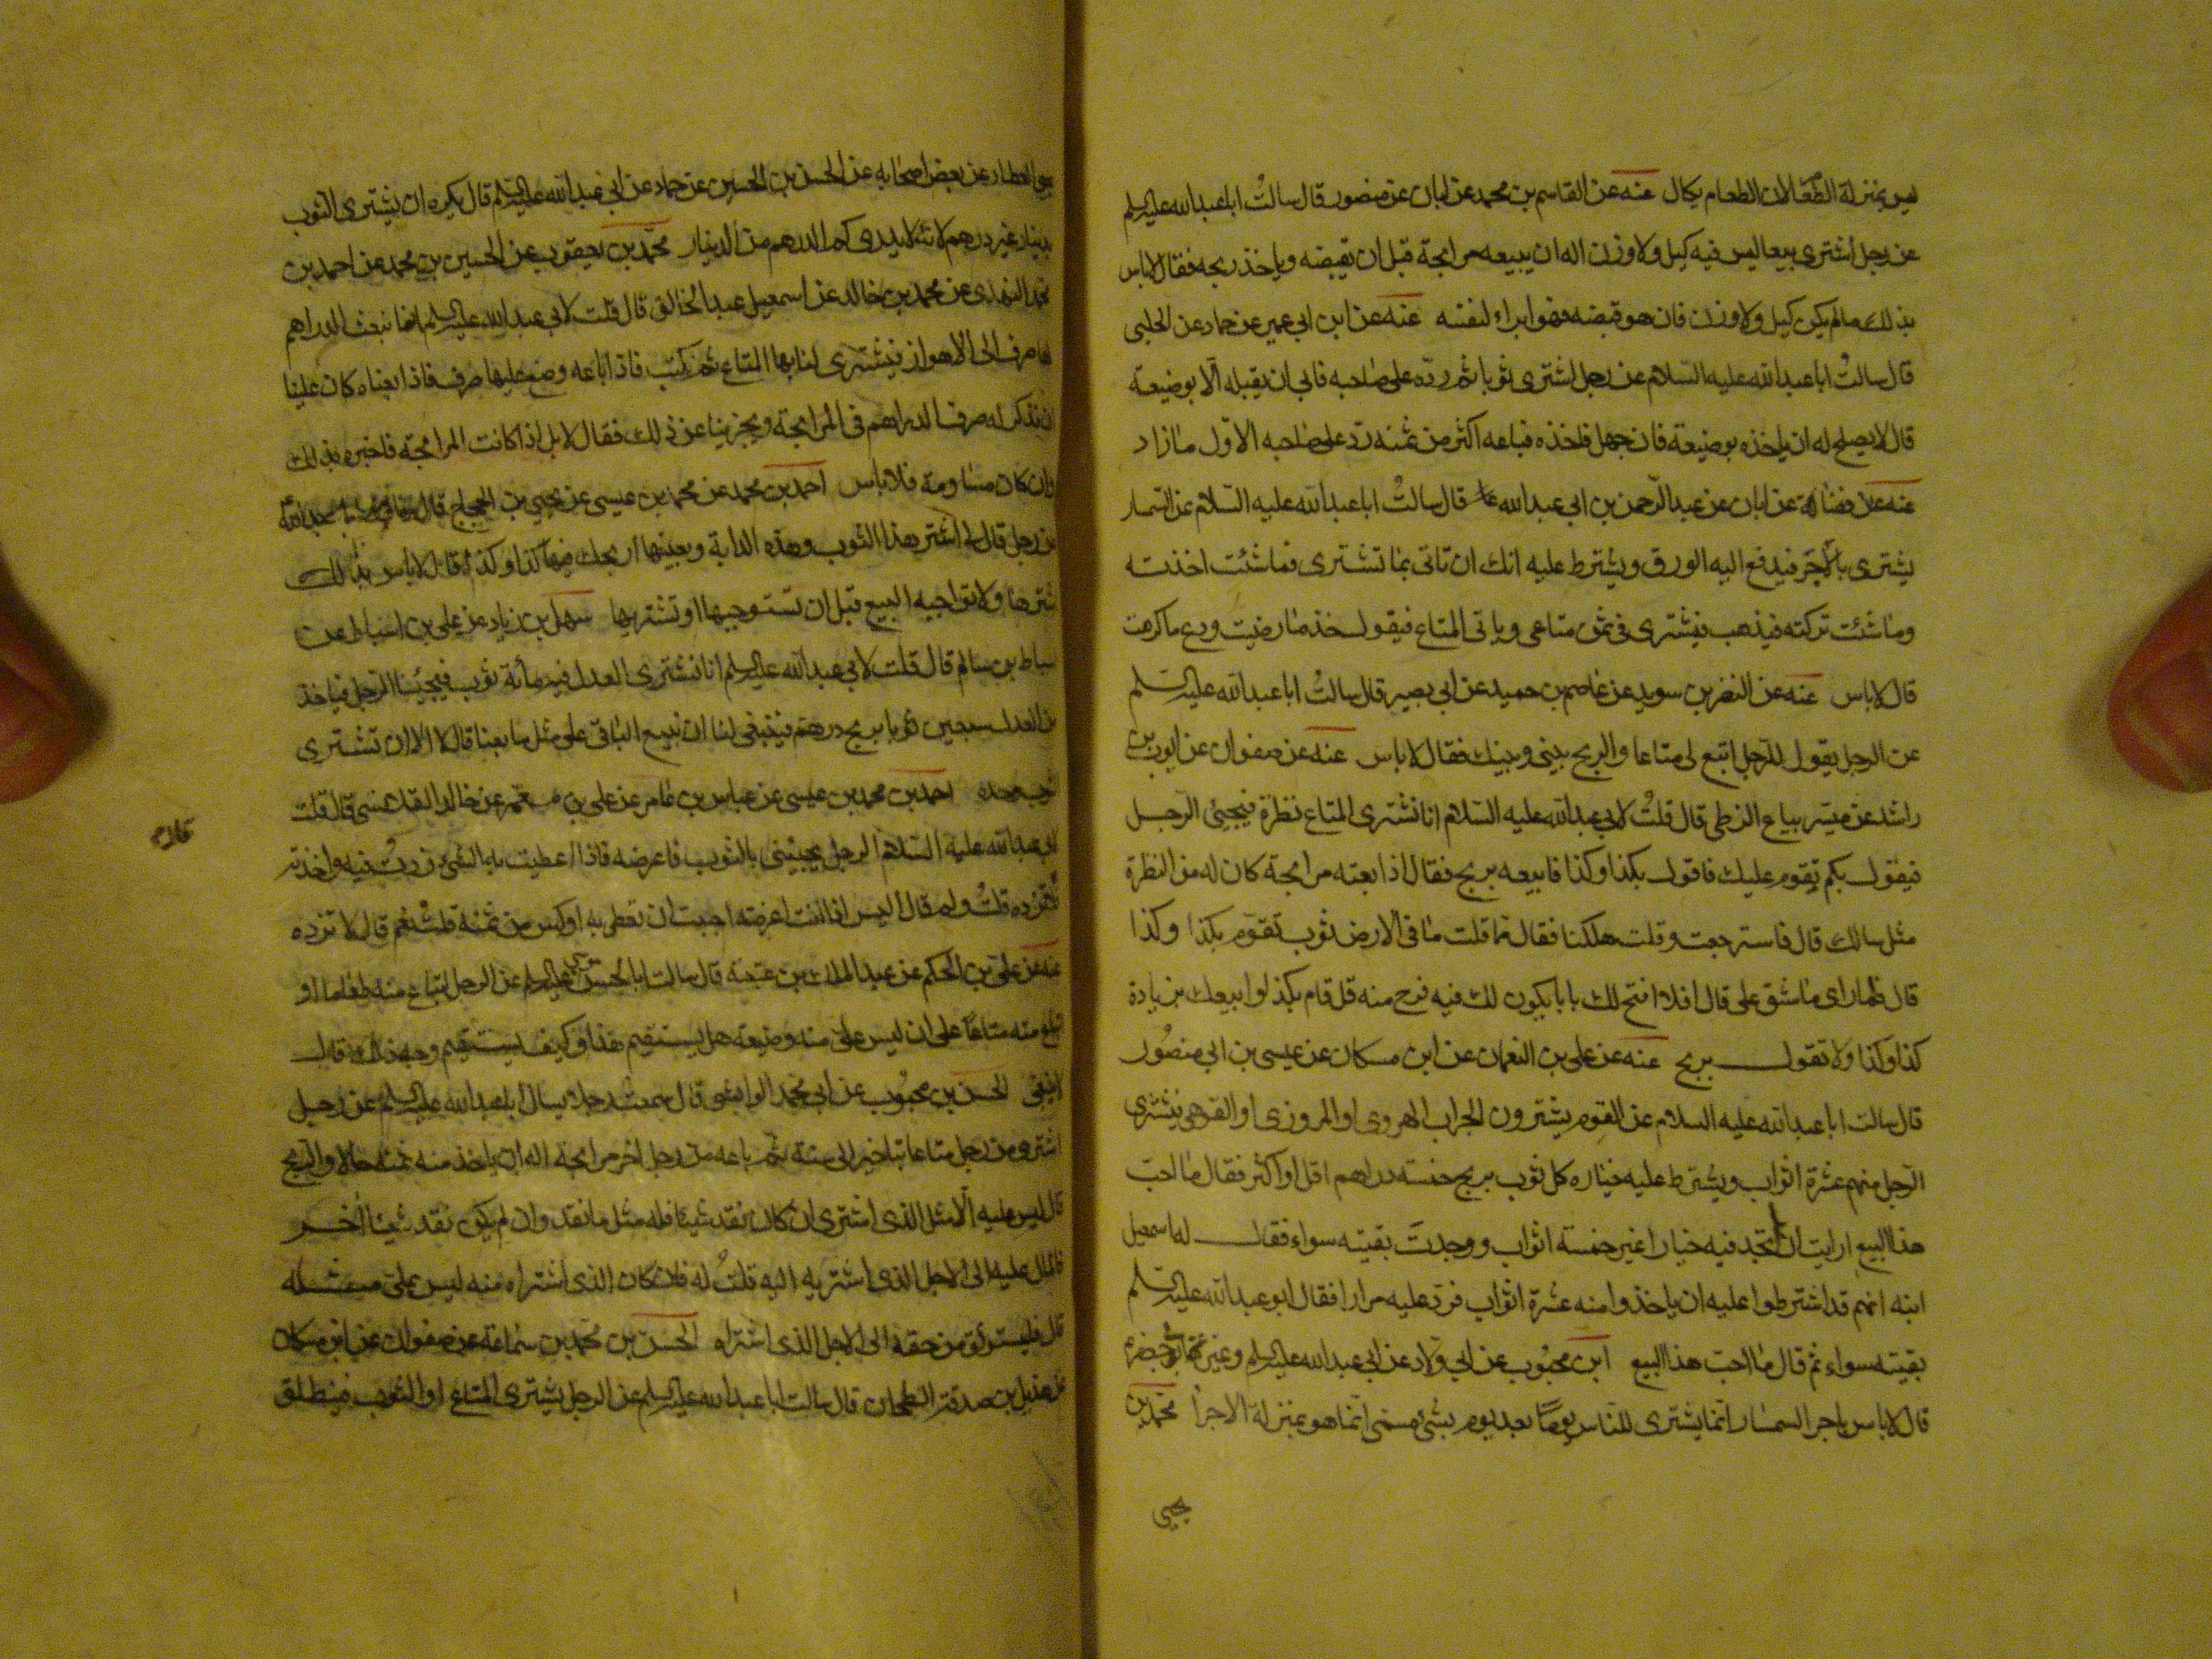 ليس بمنزلة الطعام لان الطعام يكال عنه عن القاسم بن محمد عن ابان عن منصور قال سالتُ ابا عبد الله عليه السلم
عن رجل اشترى بيعا ليس فيه كيل ولا وزن اله ان يبيعه مرابحة قبل ان يقبضه وياخذ ربحه فقال لا باس
بذلك ما لم يكن كيل ولا وزن فان هو قبضه فهو ابراء لنفسه عنه عن ابن ابي عمير عن حماد عن الحلبى
قال سالتُ ابا عبد الله عليه السلام عن رجل اشترى ثوبا ثم رده على صاحبه فابى ان يقبله الا بوضيعة
قال لا يصلح له ان ياخذه بوضيعة فان جهل فاخذه فباعه اكثر من ثمنه رد على صاحبه الاوّل ما زاد
عنه عن فضالة عن ابان عن عبد الرحمن بن ابي عبد الله قال سالتُ ابا عبد الله عليه السلام عن السمسار
يشترى بالاجر فيدفع اليه الورق ويشترط عليه انك ان تاتى بما تشترى فما شئت اخذته
وما شئت تركته فيذهب فيشترى ثم ياتى بالمتاع فيقول خذ ما رضيت ودع ما كرهت
قال لا باس عنه عن النضر بن سويد عن عاصم بن حميد عن ابي بصير قال سالتُ ابا عبد الله عليه السلم
عن الرجل يقول للرجل ابتع لى متاعا والربح بينى وبينك فقال لا باس عنه عن صفوان عن ايوب بن
راشد عن ميسر بياع الزطى قال قلتُ لابي عبد الله عليه السلام انا نشترى المتاع نظرة فيجيئ الرجل
فيقول بكم تقوم عليك فاقول بكذا وكذا فابيعه بربح فقال اذا بعته مرابحة كان له من النظرة
مثل مالك قال فاسترجعت وقلت هلكنا فقال مما قلت ما فى الارض ثوب تقوم بكذا وكذا
قال فلما راى ما شق على قال افلا افتح لك بابا يكون لك فيه فرج منه قل قام بكذا وابيعك بزيادة
كذا وكذا ولا تقول بربح عنه عن على بن النعمان عن ابن مسكان عن عيسى بن ابي منصُور
قال سالت ابا عبد الله عليه السلام عن القوم يشترون الجراب الهروى او المروزى او القوهى فيشترى
الرجل منهم عشرة اثواب ويشترط عليه خياره كل ثوب بربح خمسة دراهم اقل او اكثر فقال ما احب
هذا البيع ارايت ان لم تجد فيه خيارا غير خمسة اثواب ووجدت بقيته سواء فقال له اسمعيل
ابنه انهم قد اشترطوا عليه ان ياخذوا منه عشرة اثواب فرد عليه مرارا فقال ابو عبد الله عليه السلم
بقيته سواء ثم قال ما احب هذا البيع ابن محبُوب عن ابي ولاد عن ابي عبد الله عليه السلم وغيره عن ابي جعفر
قال لا باس باجر السمسار انما يشترى للناس يومًا بعد يوم بشئ مسمى انما هو بمنزلة الاجرا محمد بن
يحيى
يحيى العطار عن بعض اصحابه عن الحسن بن الحسين عن حماد عن ابي عبد الله عليه السلم قال يكره ان يشترى الثوب
بدينار غير درهم لانه لا يدرى كم الدرهم من الدينار محمد بن يعقوب عن الحسين بن محمد عن احمد بن
محمد النهدى عن محمد بن خالد عن اسمعيل عبد الخالق قال قلت لابي عبد الله عليه السلم انا نبعث الدراهم
لها صرف الى الاهواز فيشترى لنا بها المتاع ثم نكتب فاذا باعه وضع عليها صرف فاذا بعناه كان علينا
ان نذكر له صرف الدراهم فى المرابحة ويجزينا عن ذلك فقال لا بل اذا كانت المرابحة فاخبره بذلك
وان كان مساومة فلا باس احمد بن محمد عن محمد بن عيسى عن يحيى بن الحجاج قال
عن رجل قال لى اشتر هذا الثوب وهذه الدابة وبعنيها اربحك فيها كذا وكذا قال لا باس بذلك
اشترها ولا تواجبه البيع قبل ان تستوجبها او تشتريها سهل بن زياد عن على بن اسباط عن
اسباط بن سالم قال قلت لابي عبد الله عليه السلم انا نشترى العدل فيه مائة ثوب فيجيئنا الرجل فياخذ
من العدل سبعين ثوبا بربح درهم فينبغى لنا ان نبيع الباقى على مثل ما بعنا قال لا الا ان تشترى
الثوب وحده احمد بن محمد بن عيسى عن عباس بن عامر عن على بن معمر عن خالد القلانسى قال قلت
لابي عبد الله عليه السلام الرجل يجيئنى بالثوب فاعرضه فاذا اعطيت به الشئ زدت فيه واخذته
قال لا تزده قلتُ ولم قال اليس اذا انت اعرضته احببت ان تعطى به اوكس من ثمنه قلت نعم قال لا تزده
عنه عن على بن الحكم عن عبد الملك بن عتبة قال سالت ابا الحسن موسى عليه السلم عن الرجل ابتاع منه طعاما او
ابتاع منه متاعًا على ان ليس على منه وضيعة هل يستقيم هذا وكيف يستقيم وجه ذلك قال
لا ينبغى الحسن بن محبُوب عن ابي محمد الوابشى قال سمعت رجلا يسال ابا عبد الله عليه السلم عن رجل
اشترى من رجل متاعا بتاخير الى سنة ثم باعه من رجل اخر مرابحة اله ان ياخذ منه ثمنه حالا والربح
قال ليس عليه الا مثل الذى اشترى ان كان نقد شيئا فله مثل ما نقد وان لم يكن نقد شيئا اخر
فالمال عليه الى الاجل الذى اشتريه اليه قلتُ له فان كان الذى اشتراه منه ليس بملئ مثله
قال فليستوثق من حقه الى الاجل الذى اشتراه الحسن بن محمد بن سماعة عن صفوان عن ابن مسكان
عن هذيل بن صدقة الطحان قال سالت ابا عبد الله عليه السلم عن الرجل يشترى المتاع او الثوب فينطلق